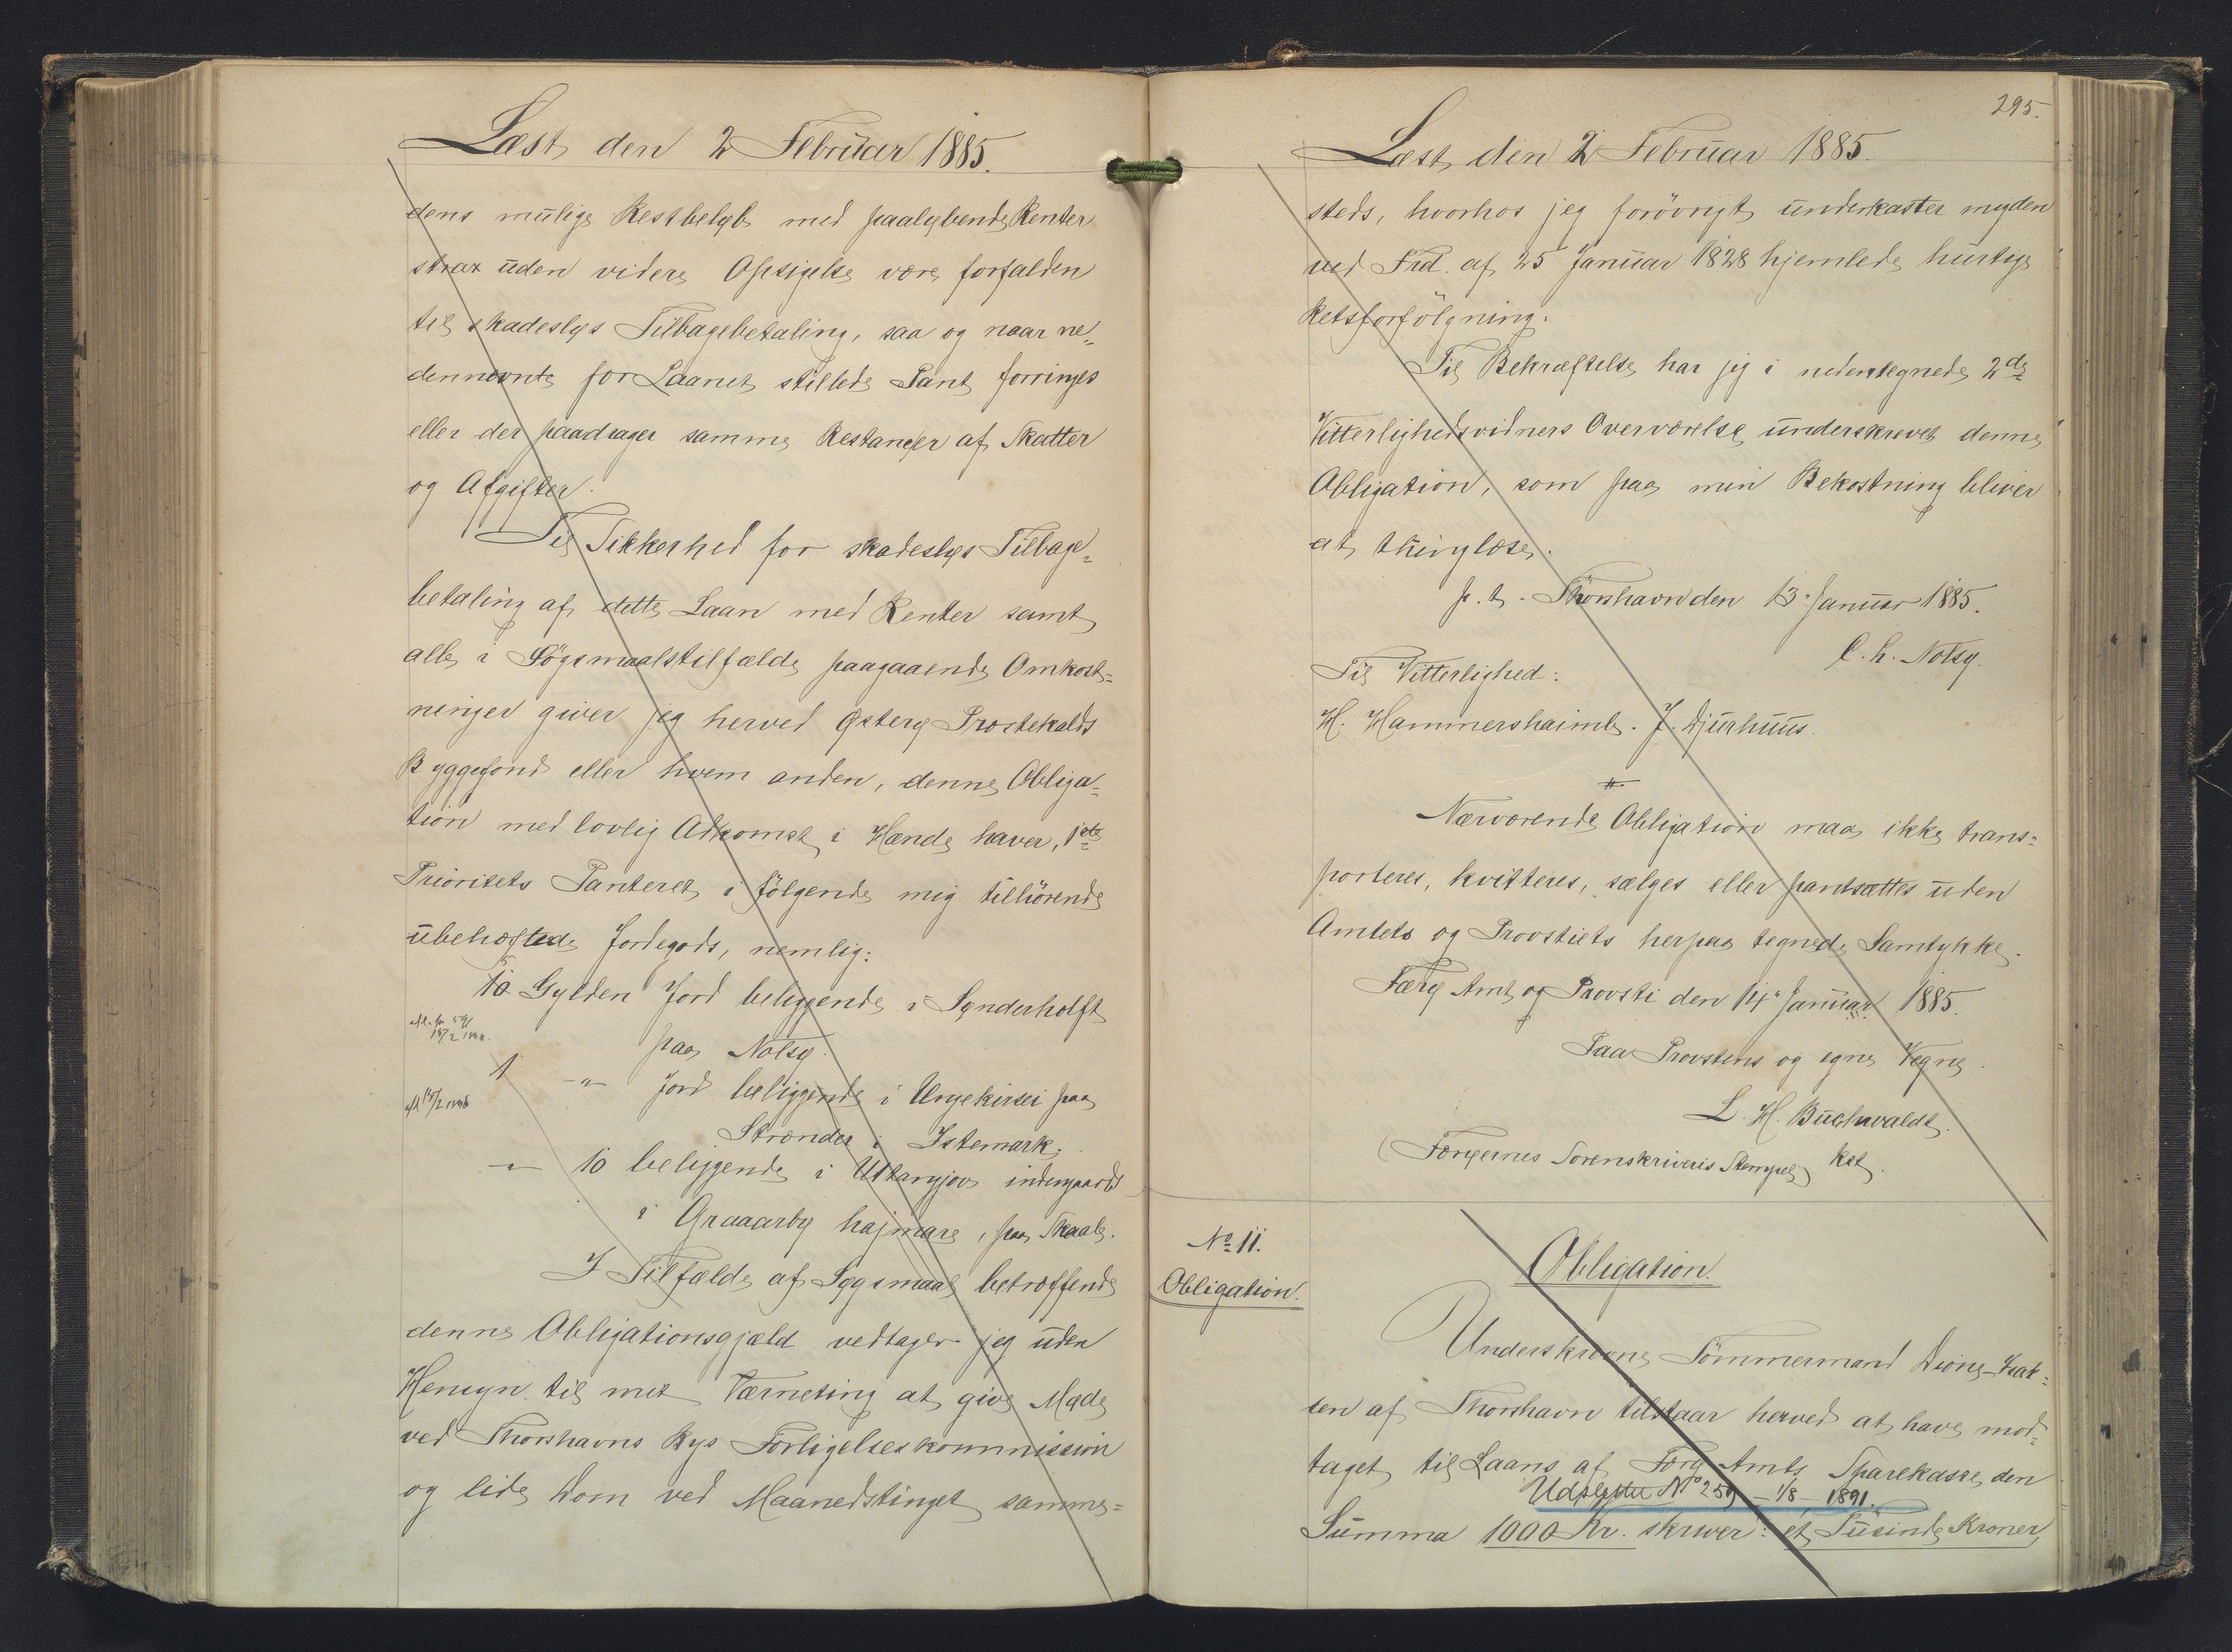 Læst den 2 Februar 1885.
dens mulige Restbeløb med paaløbende Renter
strax uden videre Opsigelse være forfalden
til skadesløs Tilbagebetaling, saa og naar ne„
dennævnte for Laanet stillede Pant forringes
eller der paadrager samme Restancer af Skatter
og Afgifter.
Til Sikkerhed for skadesløs Tilbage„
betaling af dette Laan med Renter samt
alle i Sögsmaalstilfælde paagaaende Omkost=
ninger giver jeg herved Østerø Præstekalds
Byggefond eller hvem anden, denne Obliga=
tion med lovlig Adkomst i Hænde haver, 1ste
Prioritets Panteret i følgende mig tilhörende
ubehæftede Jordegods, nemlig:
10 Gylden Jord beliggende i Synderholft
paa Nolsø.
1 -„- Jord beliggende i Ungekirsei paa
Strænder i Istemark,
-„- 10 beliggende i Uttangjov indengaards
i Graaarby hajmare, paa Skaale.
I Tilfælde af Søgsmaal betræffende
denne Obligationsgjæld vedtager jeg uden
Hensyn til mit Værneting at give Møde
ved Thorshavns Bys Forligelseskommission
og lide Dom ved Maanedstinget samme=
295.
Læst den 2 Februar 1885.
steds, hvorhos jeg forövrigt underkaster mig den
ved Frd. af 25 Januar 1828 hjemlede hurtige
Retsforfölgning.
Til Bekræftelse har jeg i nedentegnede 2de
Vitterlighedsvidners Overværelse underskrevet denne
Obligation, som paa min Bekostning bliver
at thinglæse.
p. t. Thorshavn den 13. Januar 1885.
C. h. Nolsø.
Til Vitterlighed:
H. Hammershaimb. J. Djurhuus.
Nærværende Obligation maa ikke trans=
porteres, kvitteres, sælges eller pantsættes uden
Amtets og Provstiets herpaa tegnede Samtykke.
Færø Amt og Provsti den 14. Januar 1885.
Paa Provstens og egne Vegne.
L. H. Buchwaldt.
(Færøernes Sorenskriveris Stempel) Ret.
No 11.
Obligation.
Obligation.
Underskrevne Tömmermand
sen af Thorshavn tilstaar herved at have mod=
taget til Laans af Færø Amts Sparekasse den
Udslettet No 259 - 1/8 1891.
Summa 1000 Kr. skriver: et Tusinde Kroner,